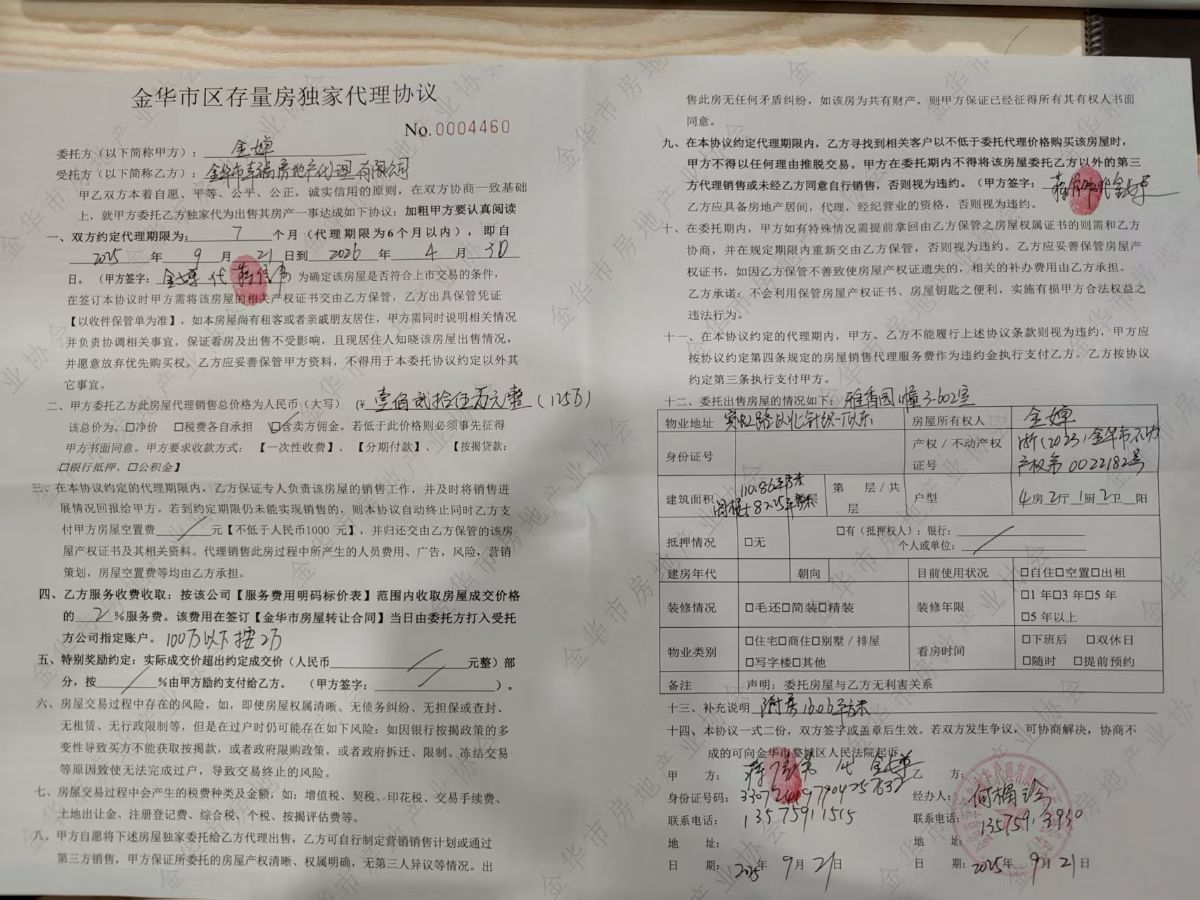 金华市区存量房独家代理协议
No.0004460
委托方（以下简称甲方）：金婵
受托方（以下简称乙方）：金华市幸福房地产代理有限公司
甲乙双方本着自愿、平等、公平、公正，诚实信用的原则，在双方协商一致基础
上，就甲方委托乙方独家代为出售其房产一事达成如下协议：加粗甲方要认真阅读
一、双方约定代理期限为：7个月（代理期限为6个月以内），即自
2025年9月21日到2026年4月30
日。（甲方签字：金婵代 为确定该房屋是否符合上市交易的条件，
在签订本协议时甲方需将该房屋的相关产权证书交由乙方保管，乙方出具保管凭证
【以收件保管单为准】，如本房屋尚有租客或者亲戚朋友居住，甲方需同时说明相关情况
并负责协调相关事宜，保证看房及出售不受影响，且现居住人知晓该房屋出售情况，
并愿意放弃优先购买权。乙方应妥善保管甲方资料，不得用于本委托协议约定以外其
它事宜。
二、甲方委托乙方此房屋代理销售总价格为人民币（大写）（¥壹佰贰拾伍万元整（125万）
该总价为、□净价 □税费各自承担 ☑含卖方佣金。若低于此价格则必须事先征得
甲方书面同意。甲方要求收款方式：【一次性收费】、【分期付款】、【按揭贷款：
□银行抵押、□公积金】
三、在本协议约定的代理期限内，乙方保证专人负责该房屋的销售工作，并及时将销售进
展情况回报给甲方。若到约定期限仍未能实现销售的，则本协议自动终止同时乙方支
付甲方房屋空置费/元【不低于人民币1000 元】，并归还交由乙方保管的该房
屋产权证书及其相关资料。代理销售此房过程中所产生的人员费用、广告，风险，营销
策划，房屋空置费等均由乙方承担。
四、乙方服务费收费收取：按该公司【服务费用明码标价表】范围内收取房屋成交价格
的2%服务费。该费用在签订【金华市房屋转让合同】当日由委托方打入受托
方公司指定账户。100万以下按2万
五、特别奖励约定：实际成交价超出约定成交价（人民币/元整）部
分，按/%由甲方励约支付给乙方。（甲方签字：/）。
六、房屋交易过程中存在的风险，如，即使房屋权属清晰、无债务纠纷、无担保或查封、
无租赁、无行政限制等，但是在过户时仍可能存在如下风险：如因银行按揭政策的多
变性导致买方不能获取按揭款，或者政府限购政策，或者政府拆迁、限制、冻结交易
等原因致使无法完成过户，导致交易终止的风险。
七、房屋交易过程中会产生的税费种类及金额，如：增值税、契税、印花税、交易手续费、
土地出让金、注册登记费、综合税、个税、按揭评估费等。
八、甲方自愿将下述房屋独家委托给乙方代理出售，乙方可自行制定营销销售计划或通过
第三方销售，甲方保证所委托的房屋产权清晰、权属明确，无第三人异议等情况。出
售此房无任何矛盾纠纷，如该房为共有财产，则甲方保证已经征得所有其有权人书面
同意。
九、在本协议约定代理期限内，乙方寻找到相关客户以不低于委托代理价格购买该房屋时，
甲方不得以任何理由推脱交易。甲方在委托期内不得将该房屋委托乙方以外的第三
方代理销售或未经乙方同意自行销售，否则视为违约。（甲方签字：代金婵
乙方应具备房地产居间，代理，经纪营业的资格，否则视为违约。
十、在委托期内，甲方如有特殊情况需提前拿回由乙方保管之房屋权属证书的则需和乙方
协商，并在规定期限内重新交由乙方保管，否则视为违约。乙方应妥善保管房屋产
权证书，如因乙方保管不善致使房屋产权证遗失的，相关的补办费用由乙方承担。
乙方承诺：不会利用保管房屋产权证书、房屋钥匙之便利，实施有损甲方合法权益之
违法行为。
十一、在本协议约定的代理期内，甲方、乙方不能履行上述协议条款则视为违约，甲方应
按协议约定第四条规定的房屋销售代理服务费作为违约金执行支付乙方。乙方按协议
约定第三条执行支付甲方。
十二、委托出售房屋的情况如下：雅香园1幢3-602室
物业地址 宾虹路以北 房屋所有权人 金婵
身份证号 产权／不动产权证号 浙(2023)金华市不动产权第0022182号
建筑面积 110.86平方米 第 层／共 层 户型 4房2厅1厨2卫 阳
抵押情况 □无 □有（抵押权人）：银行：
个人或单位：
建房年代 朝向 目前使用状况 □自住□空置□出租
装修情况 □毛还□简装□精装 装修年限 □1年□3年□5年
□5年以上
物业类别 □住宅□商住□别墅／排屋 看房时间 □下班后 □双休日
□写字楼□其他 □随时 □提前预约
备注 声明：委托房屋与乙方无利害关系
十三、补充说明 附房16.06平方米
十四、本协议一式二份，双方签字或盖章后生效。若双方发生争议，可协商解决，协商不
成的可向金华市婺城区人民法院起诉。
甲 方：代 金婵 乙 方：
身份证号码： 经办人：
联系电话：13575911515 联系电话：
地 址： 地 址：
日 期：2025年9月21日 日 期：2025年9月21日